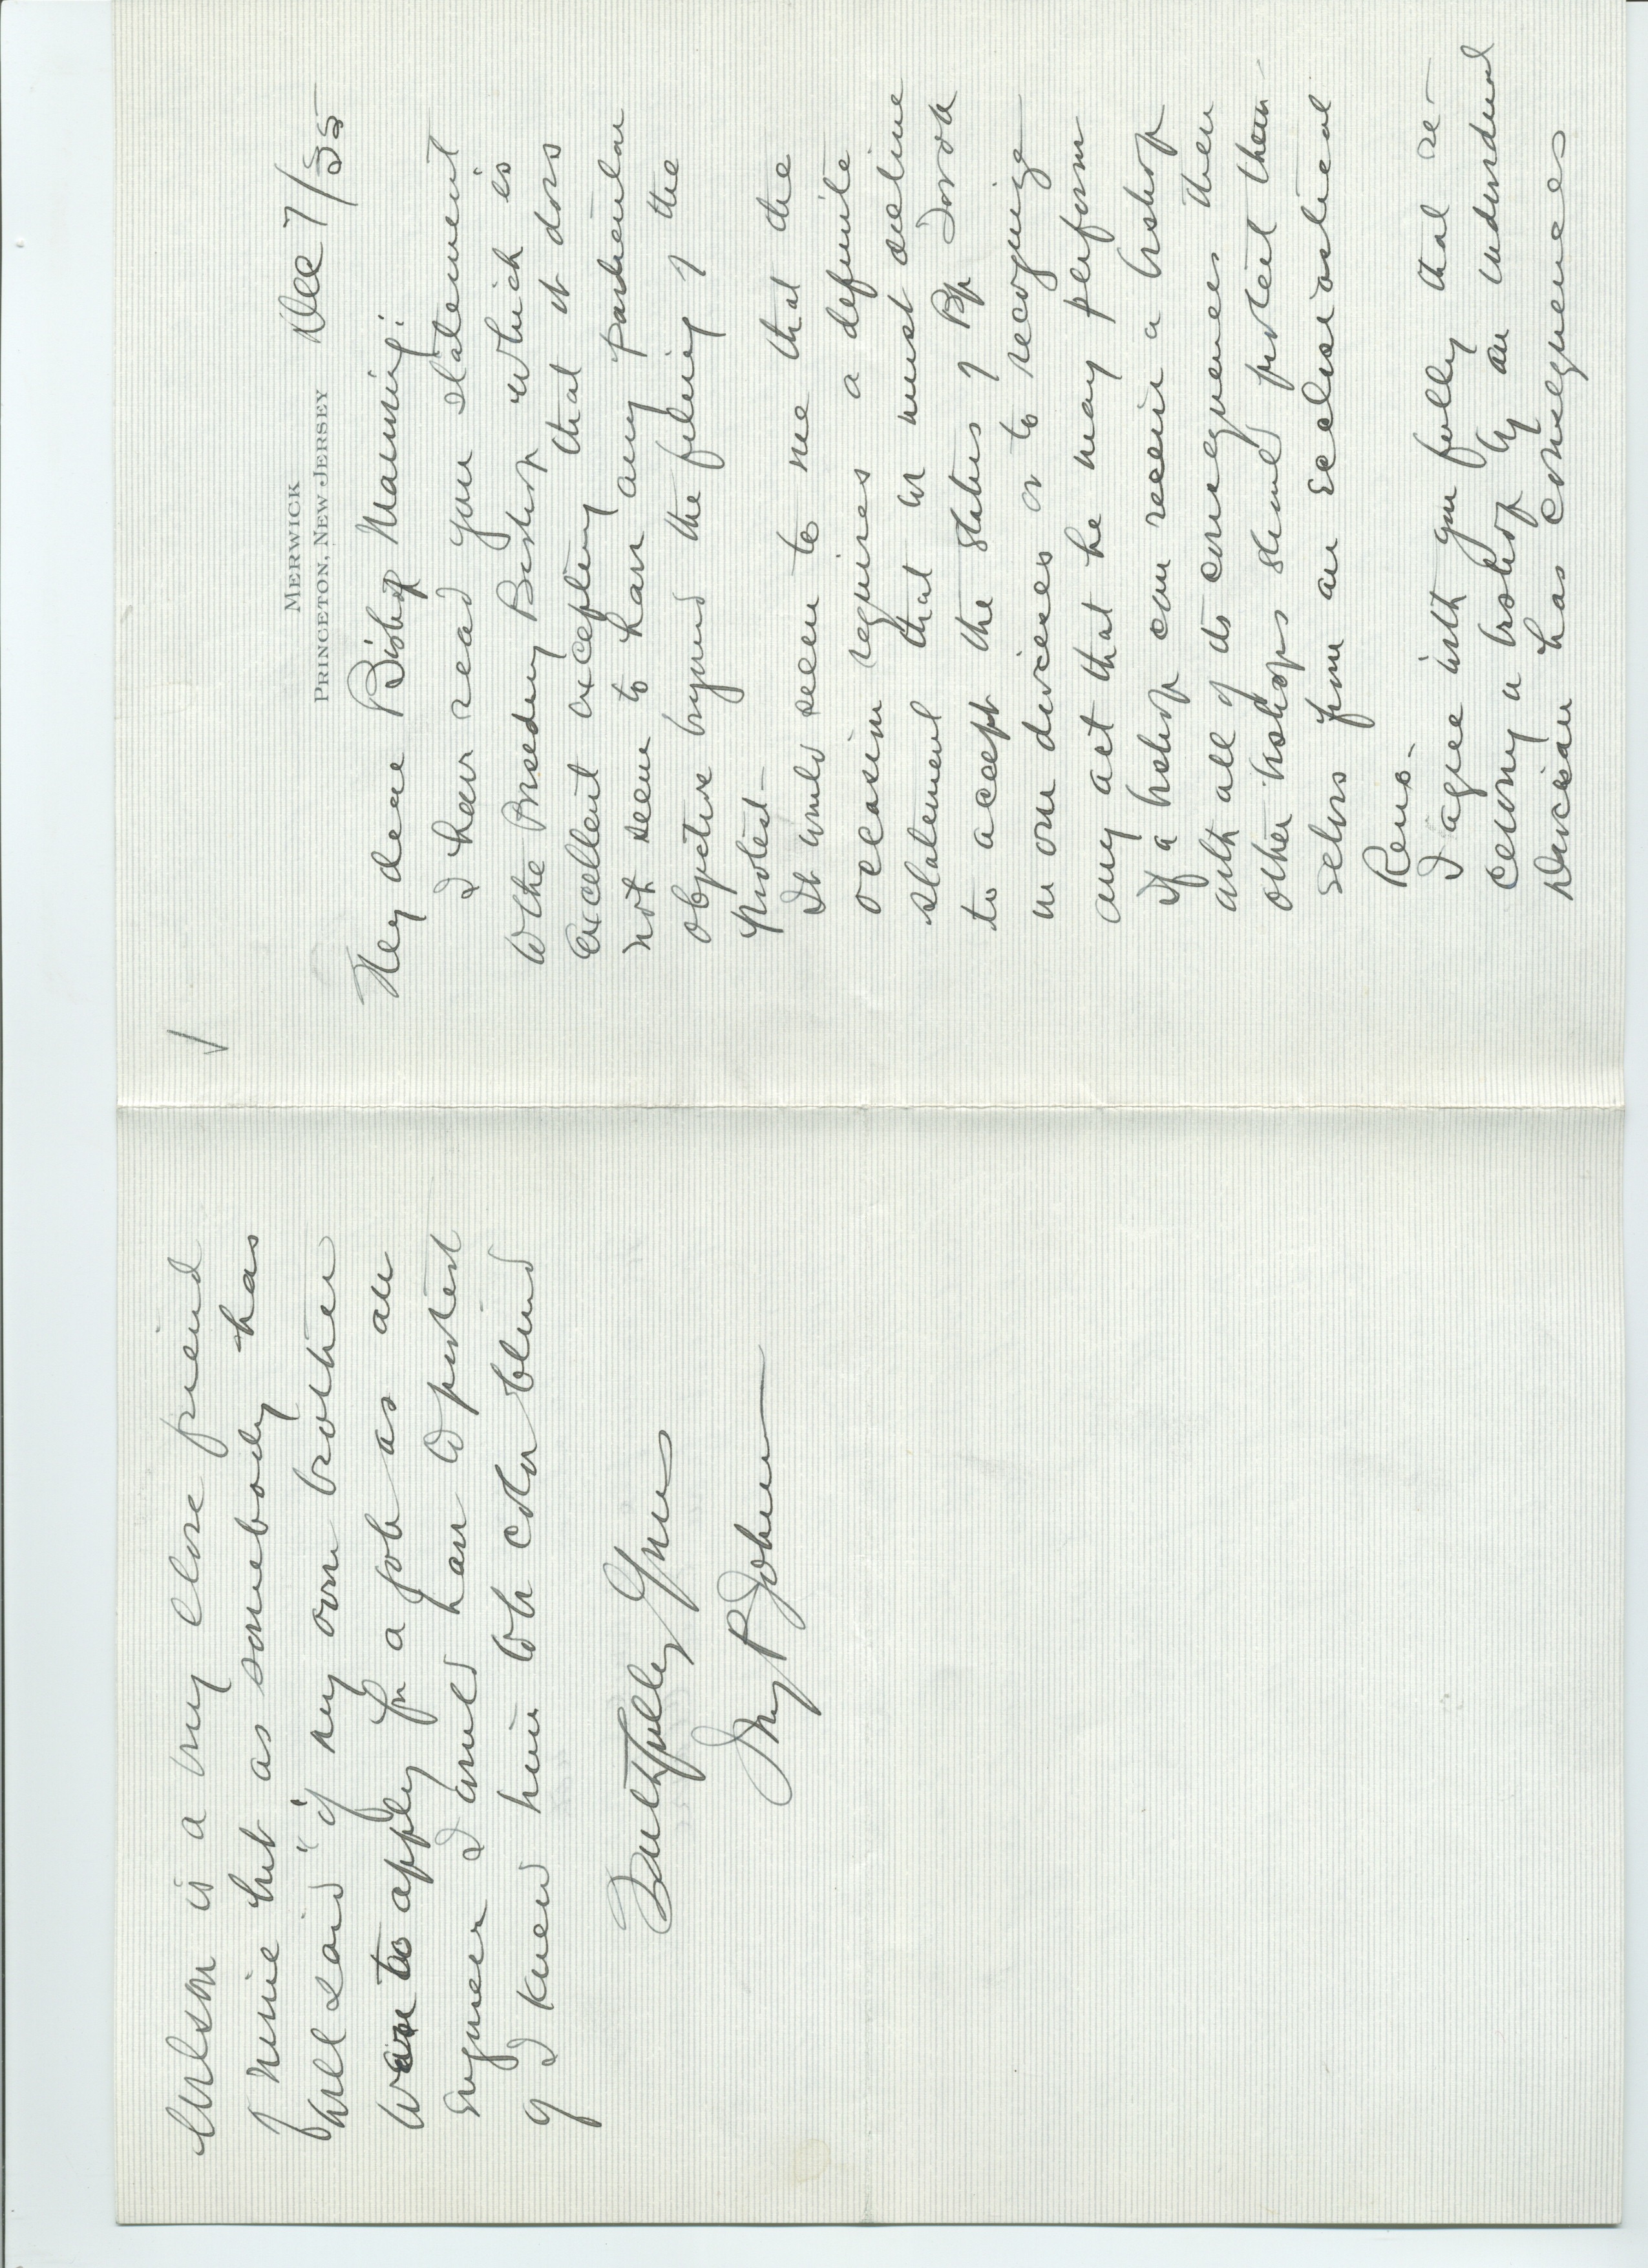 MERWICK
PRINCETON, NEW JERSEY
Dec 7/35
My dear Bishop Manning:
I have read your statement
to the Presiding Bishop which is
excellent excepting that it does
not seem to have any particular
objective beyond the filing of the
protest—
It would seem to me that the
occasion requires a definite
statement that we must decline
to accept the status of Bp
in our dioceses or to recognize
any act that he may perform
If a bishop can receive a bishop
with all of its consequences then
other bishops should protect them-
selves from an Ecclesiastical
Reus.
I agree with you fully that re-
ceiving a bishop by an individual
Diocesan has consequences
is a very close friend
of mine but as somebody has
well said "if my own brother
were to apply for a job as an
engineer I would have to protest
if I knew him to be color blind
Faithfully Yours